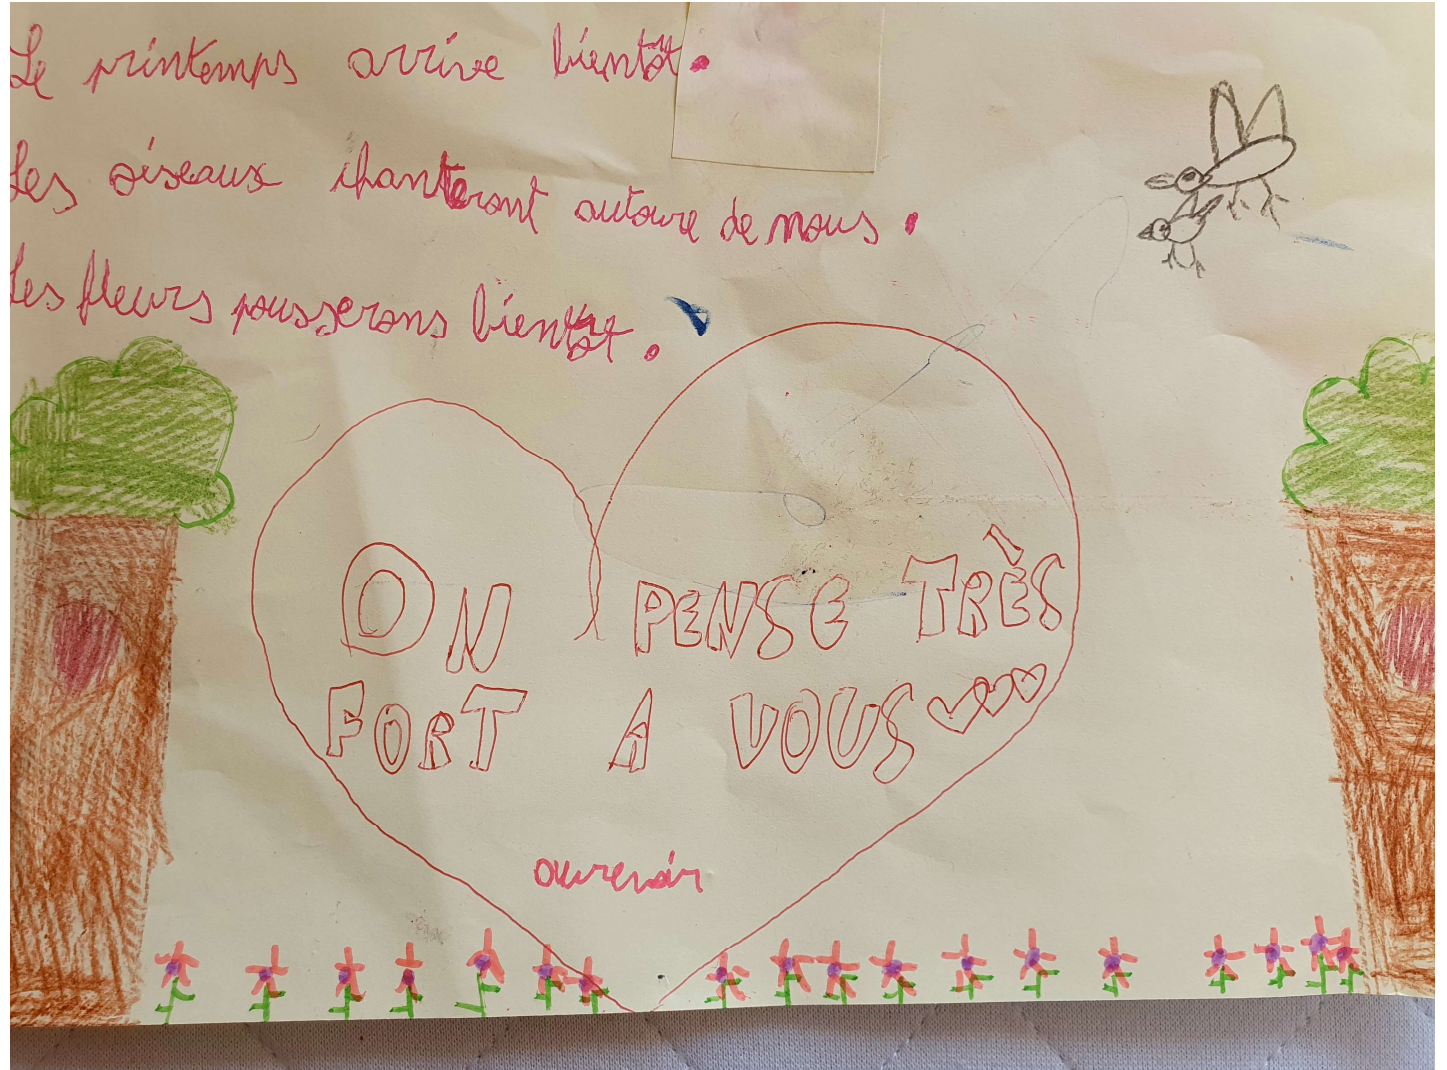 Le printemps arrive bientôt.
Les oiseaux chanteront autoure de nous.
Les fleurs pousserons bientôt.
ON PENSE TRÈS
FORT A VOUS
aurevoir